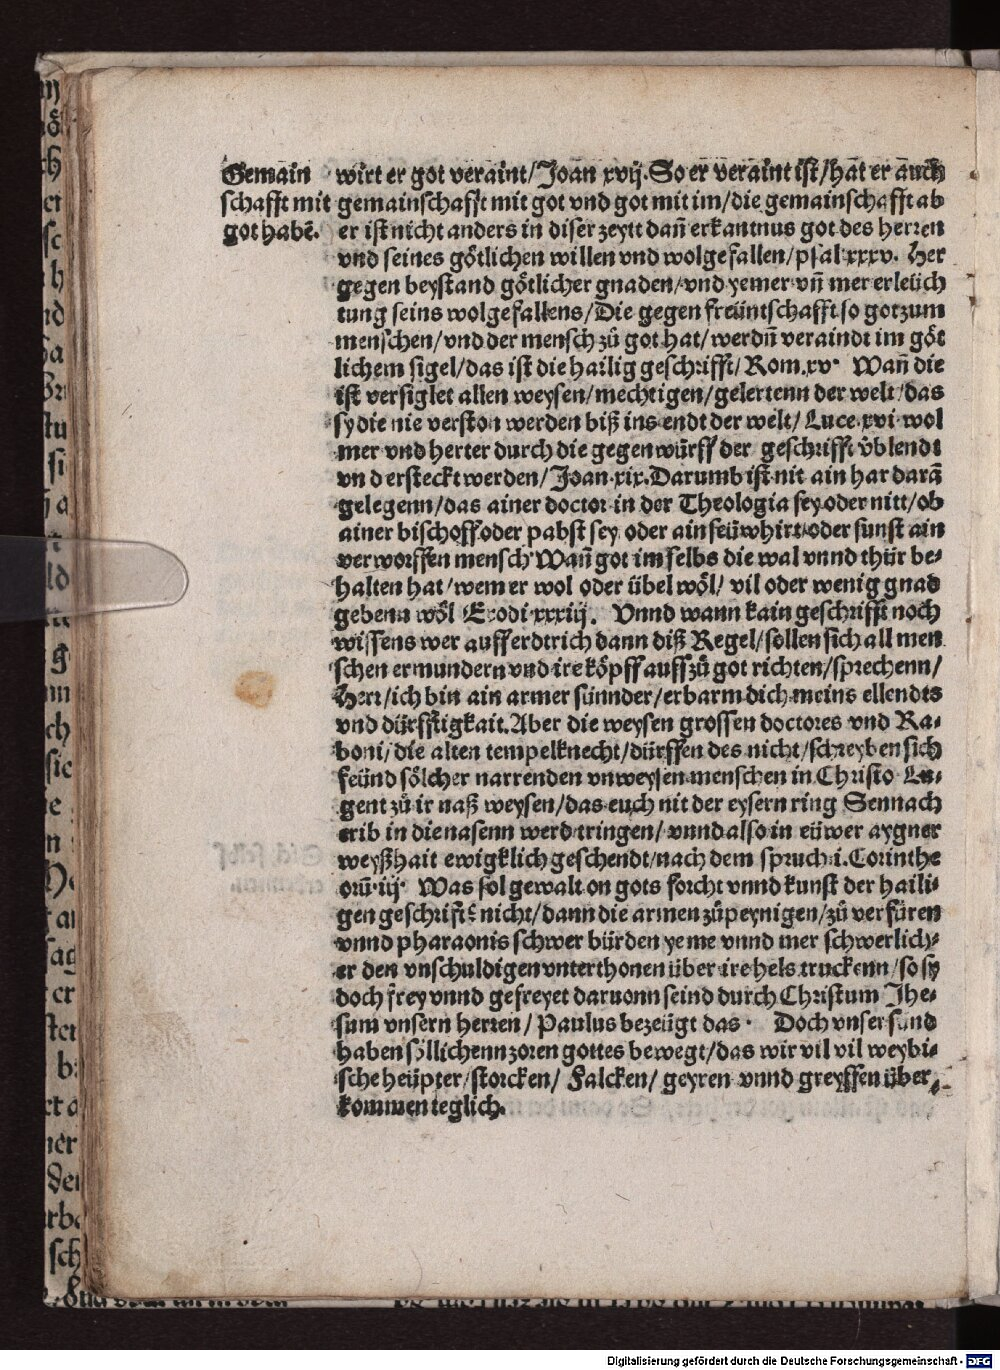 Gemain
schafft mit
got habē.
wirt er got veraint/Joan xvij. So er veraint ist/hat er auch
gemainschafft mit got vnd got mit im/die gemainschafft ab
er ist nicht anders in diser zeytt dañ erkantnus got des herren
vnd seines götlichen willen vnd wolgefallen/psal xxxv. Her
gegen beystand götlicher gnaden/vnd yemer vñ mer erleüch
tung seins wolgefallens/Die gegen freüntschafft so got zum
menschen/vnd der mensch zů got hat/werdñ veraindt im göt
lichem sigel/das ist die hailig geschrifft/Rom.xv. Wañ die
ist versiglet allen weysen/mechtigen/gelertenn der welt/das
sy die nie verston werden biß ins endt der welt/Luce.xvi wol
mer vnd herter durch die gegenwürff der geschrifft v̊blendt
vnd ersteckt werden/Joan.xix.Darumb ist nit ain har darā
gelegenn/das ainer doctor in der Theologia sey oder nitt/ob
ainer bischoff oder pabst sey oder ain seüwhirt oder sunst ain
verworffen mensch Wañ got im selbs die wal vnnd thür be-
halten hat/wem er wol oder übel wöl/vil oder wenig gnad
gebenn wöl Exodi xxxiij. Vnnd wann kain geschrifft noch
wissens wer auff erdtrich dann diß Regel/sollen sich all men
schen ermundern vnd ire köpff auff zů got richten/sprechenn/
Herr/ich bin ain armer sünnder/erbarm dich meins ellendts
vnd dürfftigkait. Aber die weysen grossen doctores vnd Ra-
boni/die alten tempelknecht/dürffen des nicht/schreyben sich
feünd sölcher narrenden vnweysen menschen in Christo Lu-
gent zů ir naß weysen/das euch nit der eysern ring Sennach
erib in die nasenn werd tringen/vnnd also in eüwer aygner
weyßhait ewigklich geschendt/nach dem spruch.i.Corinthe
orū.iij. Was sol gewalt on gots forcht vnnd kunst der haili-
gen geschrifft nicht/dann die armen zů peynigen/zů verfüren
vnnd pharaonis schwer bürden yeme vnnd mer schwerlich-
er den vnschuldigen vnterthonen über ire hels truckenn/so sy
doch frey vnnd gefreyet daruonn seind durch Christum Jhe-
sum vnsern herren/Paulus bezeügt das. Doch vnser sund
haben söllichenn zoren gottes bewegt/das wir vil vil weybi-
sche heüpter/storcken/Falcken/geyren vnnd greyffen über-
kommen teglich.
Digitalisierung gefördert durch die Deutsche Forschungsgemeinschaft - DFG